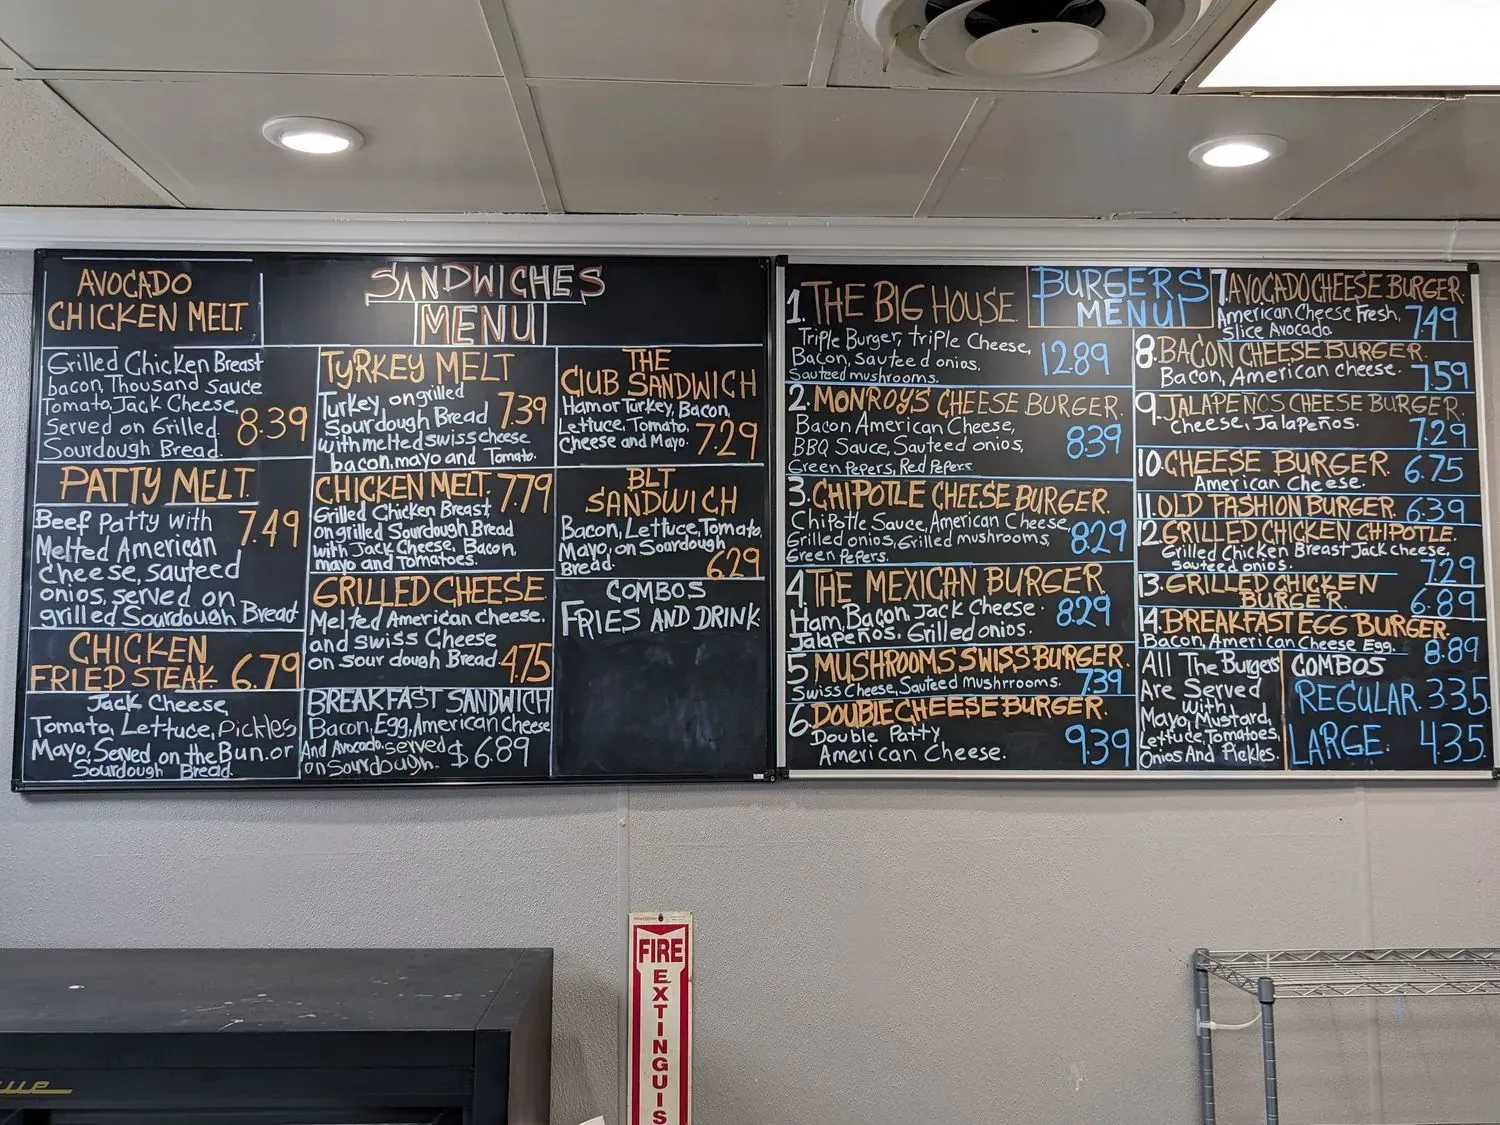 AVOCADO
CHICKEN MELT.
Grilled Chicken Breast
bacon, Thousand sauce
Tomato, Jack Cheese,
Served on Grilled
Sourdough Bread.
8.39
PATTY MELT.
Beef Patty with
Melted American
cheese, sauteed
onios, served on
grilled Sourdough Bread
7.49
CHICKEN
FRIED STEAK 6.79
Jack Cheese,
Tomato, Lettuce, Pickles
Mayo, Served on the Bun.or
Sourdough Bread.
SANDWICHES
MENU
TURKEY MELT
Turkey on grilled
Sourdough Bread
with melted swiss cheese
bacon, mayo and Tomato.
7.39
CHICKEN MELT. 7.79
Grilled Chicken Breast
on grilled Sourdough Bread
with Jack Cheese, Bacon,
mayo and Tomatoes.
GRILLED CHEESE
Melted American Cheese.
and swiss Cheese
on sour dough Bread.
4.75
BREAKFAST SANDWICH
Bacon, Egg, American Cheese
And Avocado, served
on Sourdough.
$6.89
THE
CLUB SANDWICH
Ham or Turkey, Bacon,
Lettuce, Tomato,
Cheese and Mayo.
7.29
BLT
SANDWICH
Bacon, Lettuce, Tomato,
Mayo, on Sourdough
Bread.
6.29
COMBOS
FRIES AND DRINK
BURGERS
MENU
1. THE BIG HOUSE
Triple Burger, triple Cheese,
Bacon, Sauteed onios,
Sauteed mushrooms.
12.89
2. MONROY'S CHEESE BURGER.
Bacon American Cheese,
BBQ Sauce, Sauteed onios,
Green Pepers, Red Pepers.
8.39
3. CHIPOTLE CHEESE BURGER.
Chipotle Sauce, American Cheese,
Grilled onios, Grilled mushrooms,
Green Pepers.
8.29
4 THE MEXICAN BURGER.
Ham, Bacon, Jack Cheese.
Jalapeños, Grilled onios.
8.29
5 MUSHROOMS SWISS BURGER.
Swiss Cheese, Sauteed Mushrrooms.
7.39
6. DOUBLE CHEESE BURGER.
Double Patty
American Cheese.
9.39
7. AVOCADO CHEESE BURGER.
American Cheese Fresh,
Slice Avocado.
7.49
8. BACON CHEESE BURGER.
Bacon, American cheese.
7.59
9. JALAPEÑOS CHEESE BURGER.
Cheese, Jalapeños.
7.29
10. CHEESE BURGER. 6.75
American Cheese.
11. OLD FASHION BURGER. 6.39
12. GRILLED CHICKEN CHIPOTLE.
Grilled Chicken Breast Jack cheese,
sauteed onios.
7.29
13. GRILLED CHICKEN
BURGER.
6.89
14. BREAKFAST EGG BURGER.
Bacon, American Cheese Egg.
8.89
All The Burgers
Are Served
with
Mayo, Mustard,
Lettuce, Tomatoes,
Onios And Pickles.
COMBOS
REGULAR. 3.35
LARGE. 4.35
FIRE
EXTINGUIS